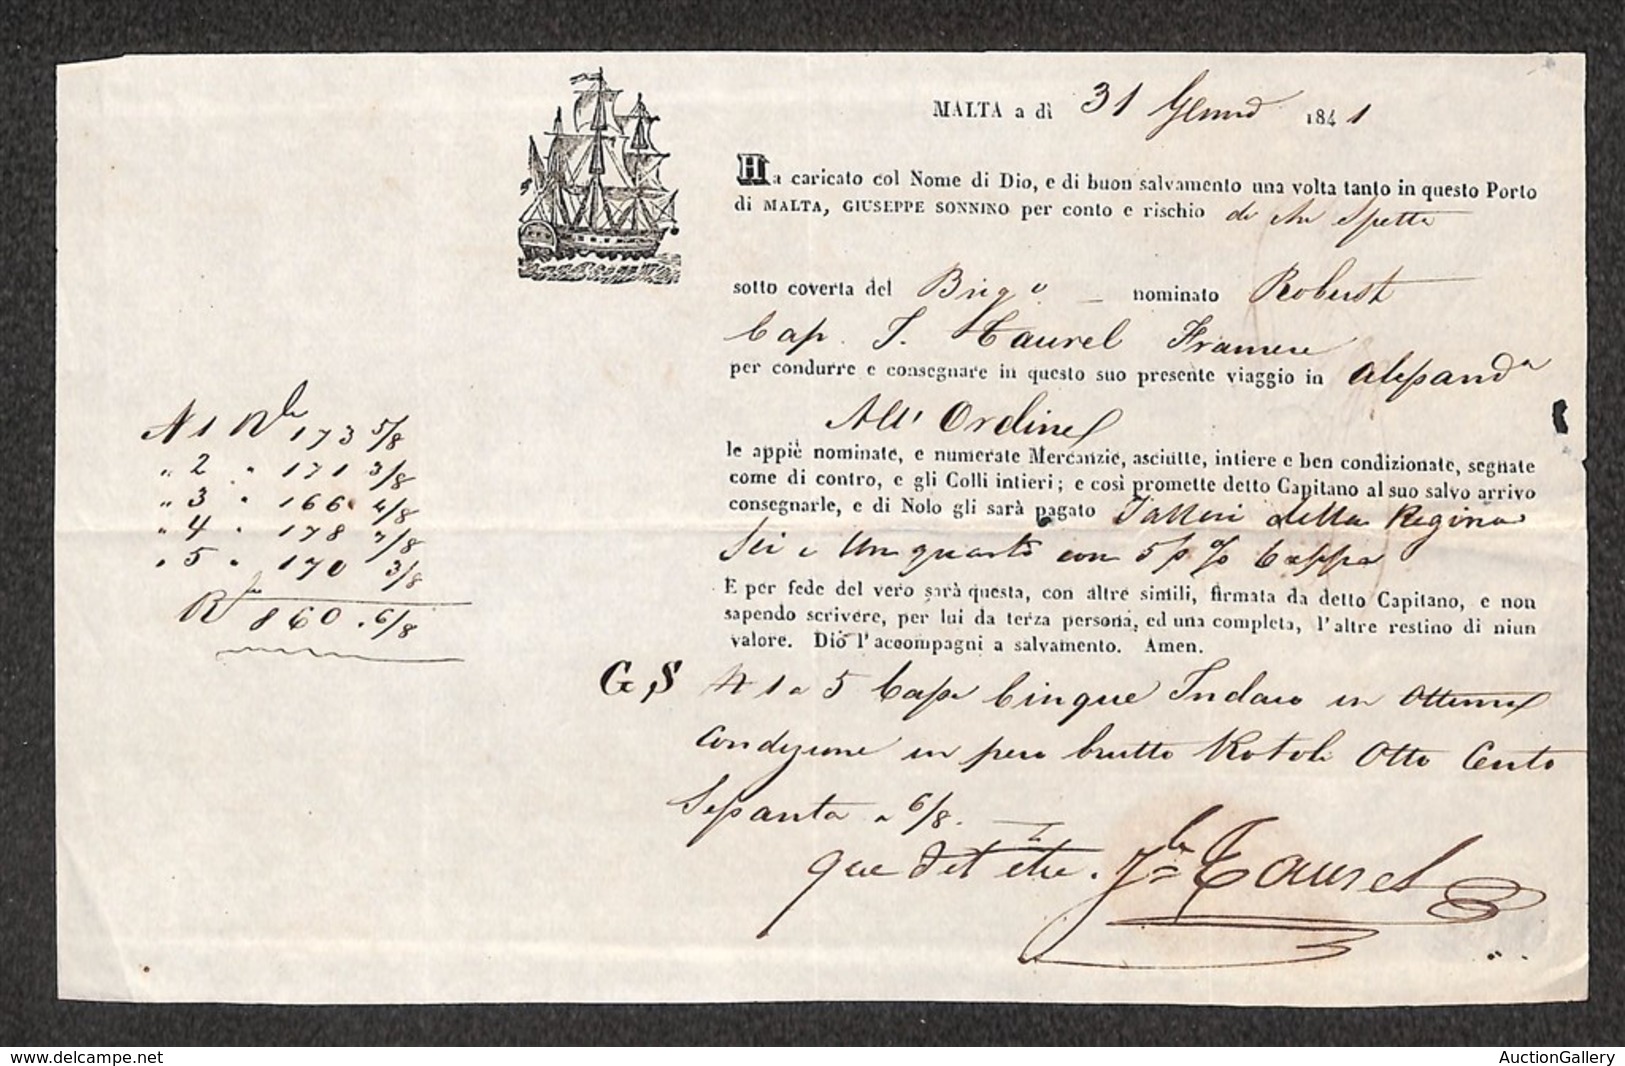 MALTA a di 31 Genn° 1841
Ha caricato col Nome di Dio, e di buon salvamento una volta tanto in questo Porto
di MALTA, GIUSEPPE SONNINO per conto e rischio di chi Spetta
sotto coverta del Brig° — nominato Robust
Cap. J. Taurel Francese
per condurre e consegnare in questo suo presente viaggio in Alessand^a
All' Ordine
le appiè nominate, e numerate Mercanzie, asciutte, intiere e ben condizionate, segnate
come di contro, e gli Colli intieri; e così promette detto Capitano al suo salvo arrivo
consegnarle, e di Nolo gli sarà pagato Talleri della Regina
Sei e Un quarto con 5 p % Cappa
E per fede del vero sarà questa, con altre simili, firmata da detto Capitano, e non
sapendo scrivere, per lui da terza persona, ed una completa, l'altre restino di niun
valore. Dio l'accompagni a salvamento. Amen.
N 1 R^li 173 5/8
" 2 " 171 3/8
" 3 " 166 4/8
" 4 " 178 7/8
" 5 " 170 3/8
R^li 860. 6/8
G, S N 1 a 5 Casse Cinque Indaco in Ottima
Condizione in peso brutto Rotoli Otto Cento
Sessanta e 6/8.
que dit être. Taurel
delcampe.net
AuctionGallery